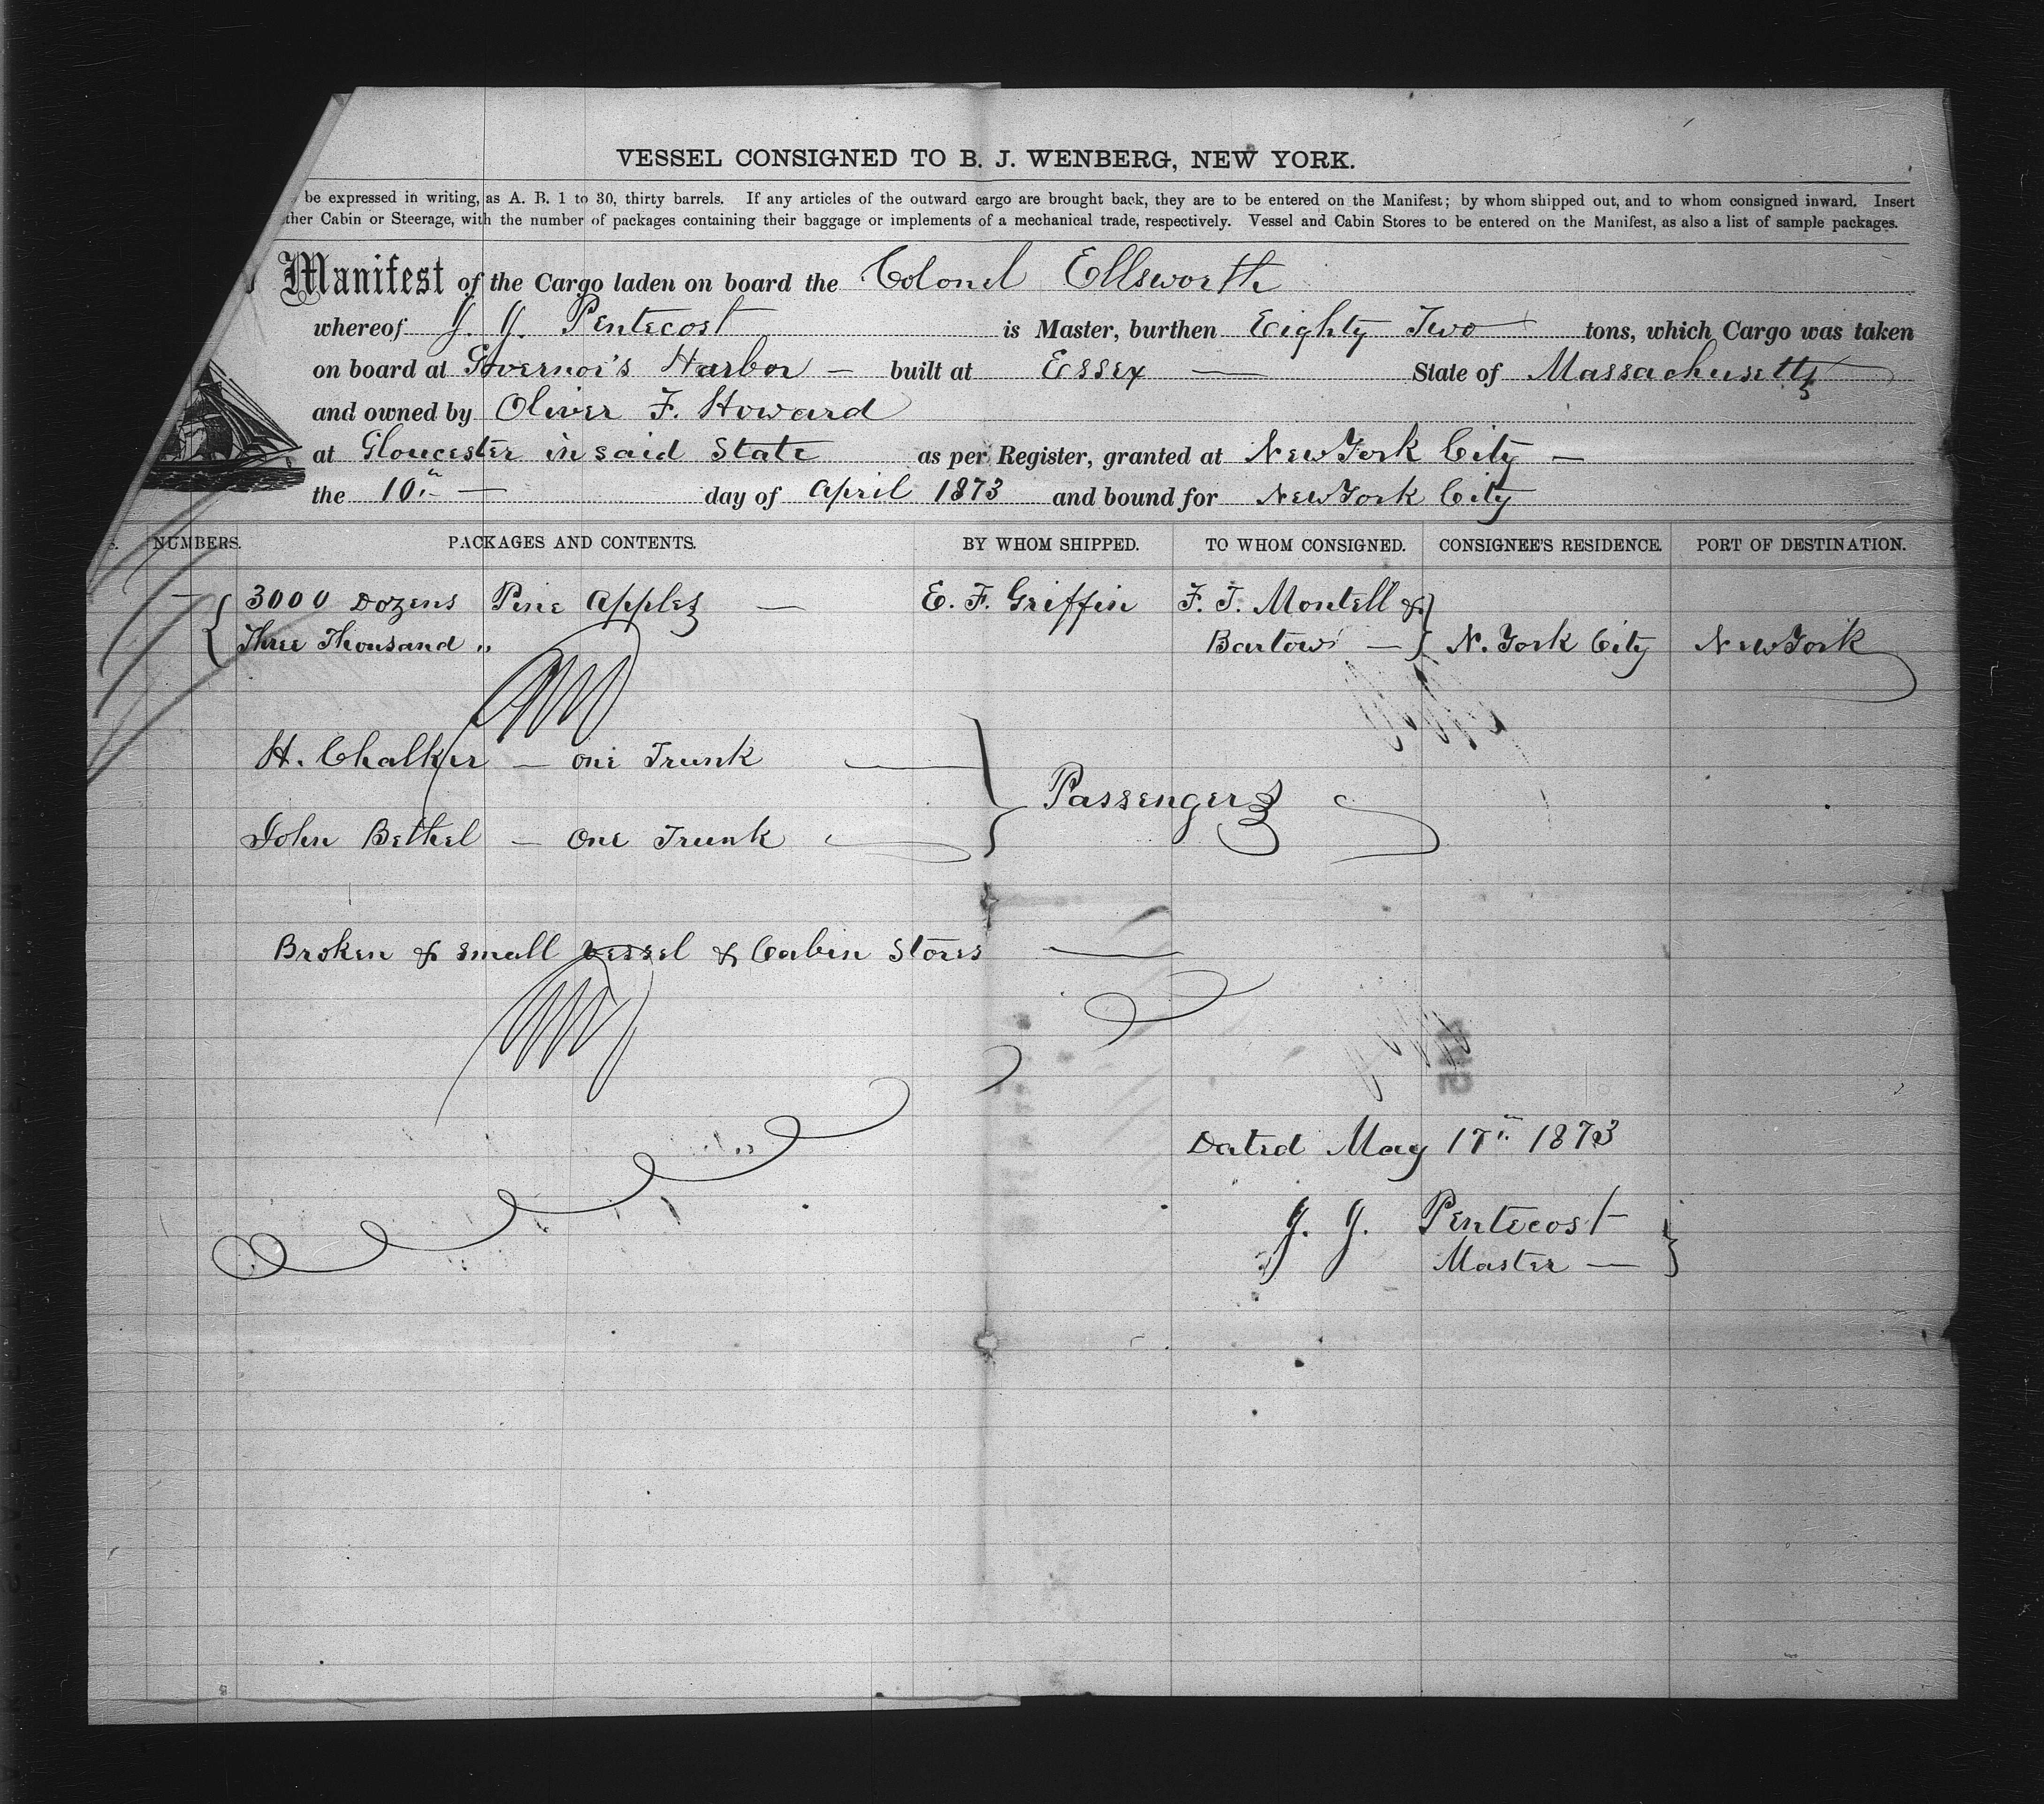 VESSEL CONSIGNED TO B. J. WENBERG, NEW YORK.
be expressed in writing, as A. B. 1 to 30, thirty barrels. If any articles of the outward cargo are brought back, they are to be entered on the Manifest; by whom shipped out, and to whom consigned inward. Insert
ther Cabin or Steerage, with the number of packages containing their baggage or implements of a mechanical trade, respectively. Vessel and Cabin Stores to be entered on the Manifest, as also a list of sample packages.
Manifest of the Cargo laden on board the Colonel Ellsworth
whereof J. J. Pentecost is Master, burthen Eighty Two tons, which Cargo was taken
on board at Governor's Harbor — built at Essex — State of Massachusetts
and owned by Oliver F. Howard
at Gloucester in said State as per Register, granted at New York City —
the 10th — day of April 1873 and bound for New York City
NUMBERS. PACKAGES AND CONTENTS. BY WHOM SHIPPED. TO WHOM CONSIGNED. CONSIGNEE'S RESIDENCE. PORT OF DESTINATION.
3000 Dozens Pine Apples — E. F. Griffin F. T. Montell &
Three Thousand " Bartow — N. York City New York
H. Chalker — one Trunk
Passengers
John Bethel — One Trunk
Broken & small vessel & Cabin Stores —
Dated May 17th 1873
J. J. Pentecost
Master —